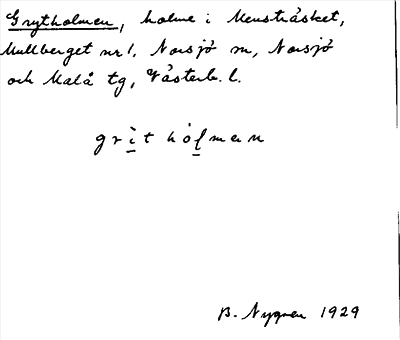 Grytholmen, holme i Mensträsket,
Mullberget nr 1, Norsjö sn, Norsjö
och Malå tg, Västerb. l.
grì̱t hòḻmen
B. Nygren 1929